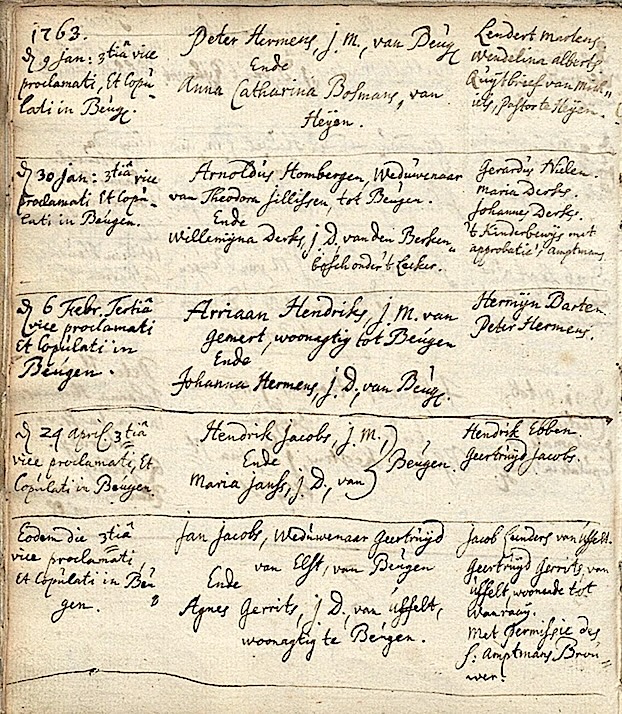 1763.
d 9 Jan: 3tiâ vice
proclamati, Et Copu-
lati in Beug.
Peter Hermens, j. M., van Beug
Ende
Anna Catharina Bosmans, van
Heyen.
Lendert Martens
Wendelina alberts
Quytbrief van
Pastor te Heyen.
d 30 Jan: 3tiâ vice
proclamati Et Copu-
lati in Beugen.
Arnoldus Hombergen, Weduwenaar
van Theodora Jillissen, tot Beugen.
Ende
Willemijna Derks, j. D. van den Berken
bosch onder 't
Gerardus Nielen.
Maria Derks.
Johannes Derks.
't Kinderbewijs met
approbatie, amptmans
d 6 Febr. Tertiâ
vice proclamati
Et Copulati in
Beugen.
Arriaan Hendriks, j. M. van
Gemert, woonagtig tot Beugen
Ende
Johanna Hermens, j. D., van Beug.
Hermijn Barten
Peter Hermens.
d 24 April 3tiâ
vice proclamati, Et
Copulati in Beugen.
Hendrik Jacobs, j. M.,
Ende
Maria Janss, j. D., van
Beugen.
Hendrik Ebben.
Geertruijd Jacobs.
Eodem die 3tiâ
vice proclamati,
Et Copulati in Beu
gen.
Jan Jacobs, Weduwenaar Geertruijd
van Elst, van Beugen
Ende
Agnes Gerrits, j. D., van Ysselt,
woonagtig te Beugen.
Jacob van Ysselt.
Geertruijd Gerrits, van
Ysselt, woonende tot
Wanraay.
Met Permissie des
H. Amptmans Brou-
wer.